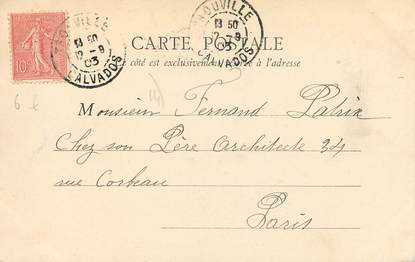 TROUVILLE
13 50
12 - 9
03
CALVADOS
TROUVILLE
13 50
12 - 9
03
CALVADOS
10
CARTE POSTALE
Ce côté est exclusivement réservé à l'adresse
6 €
Monsieur Fernand Patrix
Chez son Père Architecte 34
rue Corbeau
Paris